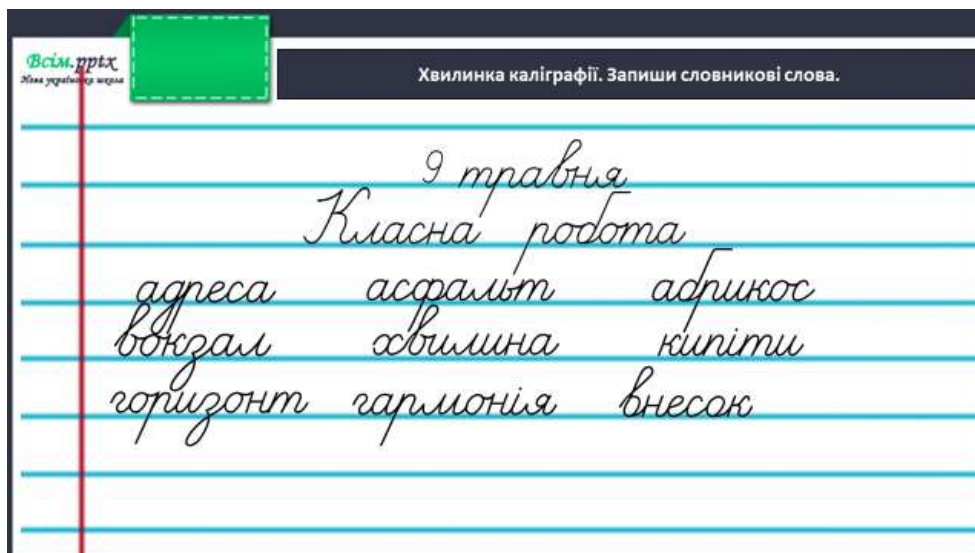 Всім.pptx
Нова українська школа
Хвилинка каліграфії. Запиши словникові слова.
9 травня
Класна робота
адреса асфальт абрикос
вокзал хвилина кипіти
горизонт гармонія внесок